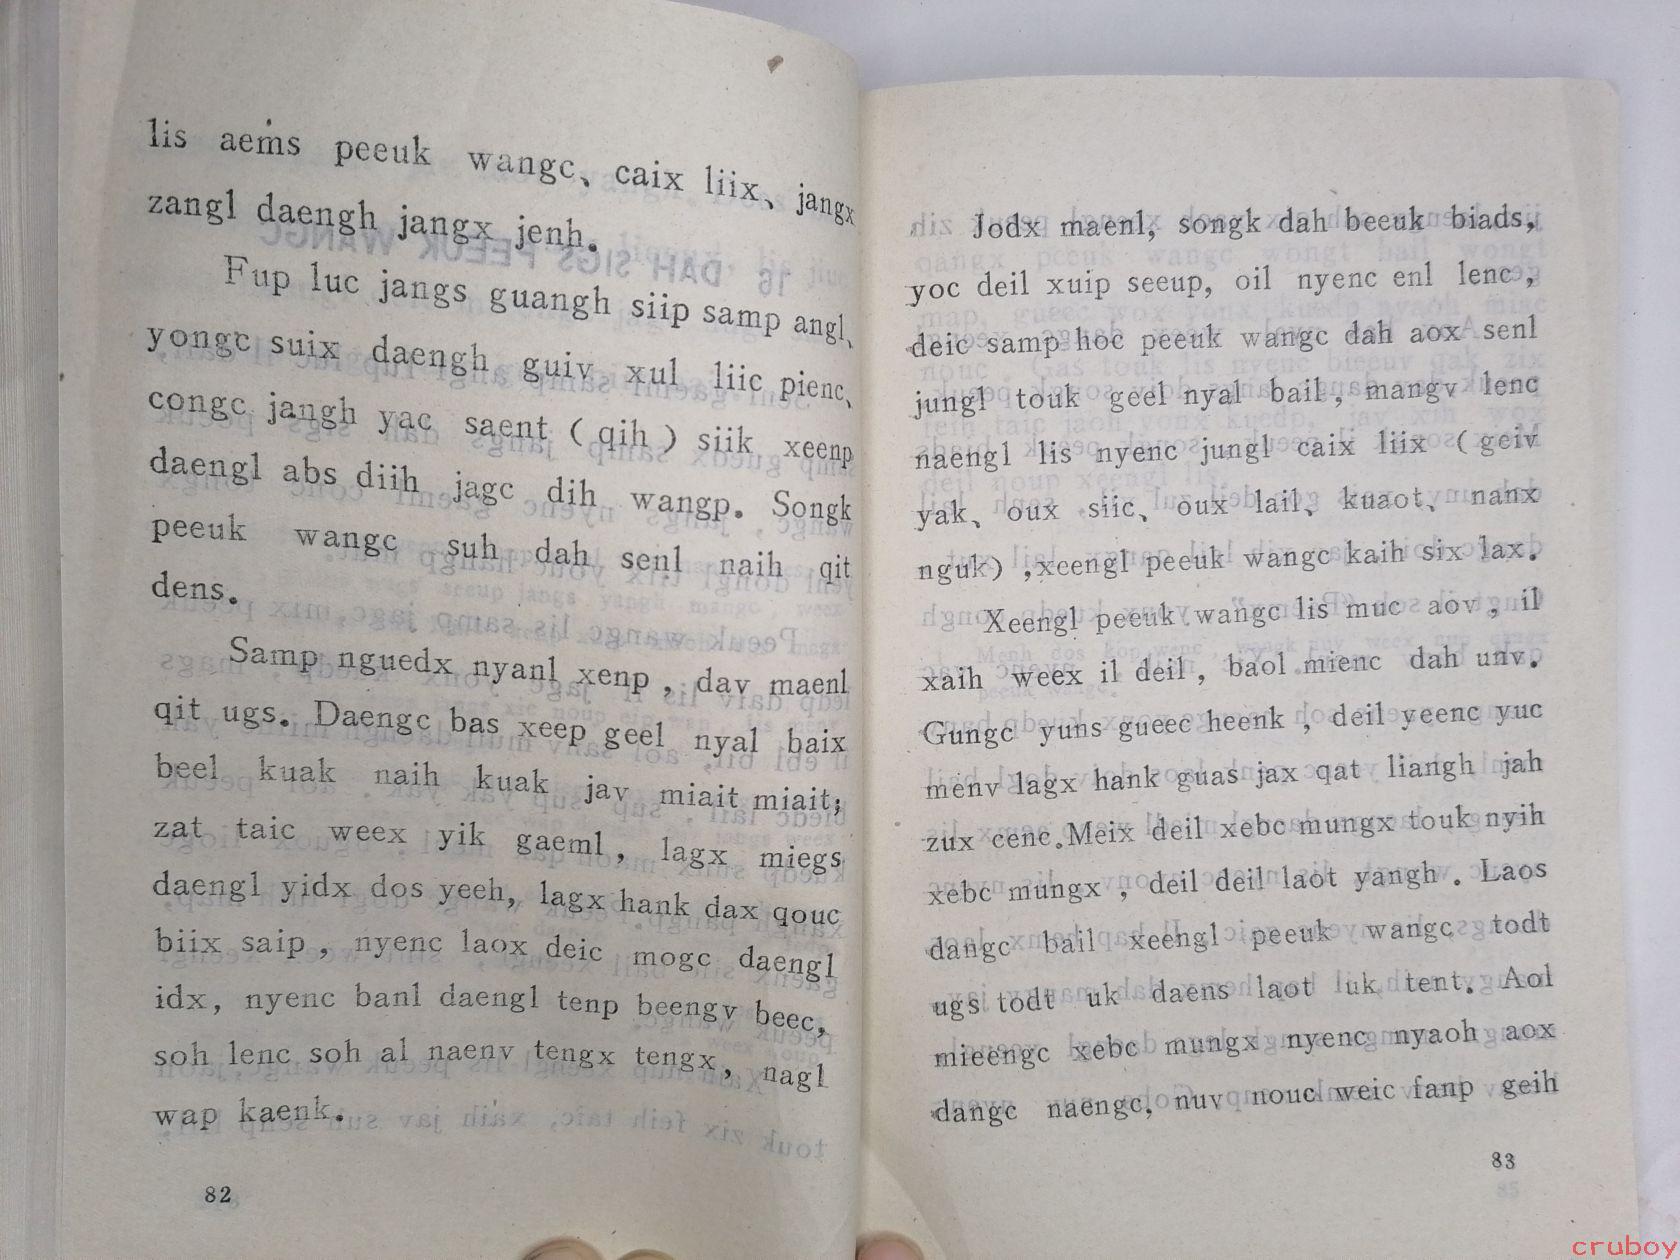 lis aems peeuk wangc、caix liix、jangx
zangl daengh jangx jenh.
Fup luc jangs guangh siip samp angl、
yongc suix daengh guiv xul liic pienc、
congc jangh yac saent (qih) siik xeenp
daengl abs diih jagc dih wangp. Songk
peeuk wangc suh dah senl naih qit
dens.
Samp nguedx nyanl xenp, dav maenl
qit ugs. Daengc bas xeep geel nyal baix
beel kuak naih kuak jav miait miait;
zat taic weex yik gaeml, lagx miegs
daengl yidx dos yeeh, lagx hank dax qouc
biix saip, nyenc laox deic mogc daengl
idx, nyenc banl daengl tenp beengv beec,
soh lenc soh al naenv tengx tengx, nagl
wap kaenk.
82
Jodx maenl, songk dah beeuk biads,
yoc deil xuip seeup, oil nyenc enl lenc,
deic samp hoc peeuk wangc dah aox senl
jungl touk geel nyal bail, mangv lenc
naengl lis nyenc jungl caix liix (geiv
yak、oux siic、oux lail、kuaot、nanx
nguk),xeengl peeuk wangc kaih six lax.
Xeengl peeuk wangc lis muc aov, il
xaih weex il deil, baol mienc dah unv.
Gungc yuns gueec heenk, deil yeenc yuc
menv lagx hank guas jax qat liangh jah
zux cenc.Meix deil xebc mungx touk nyih
xebc mungx, deil deil laot yangh. Laos
dangc bail xeengl peeuk wangc todt
ugs todt uk daens laot uk tent. Aol
mieengc xebc mungx nyenc nyaoh aox
dangc naengc, nuv nouc weic fanp geih
83
cruboy